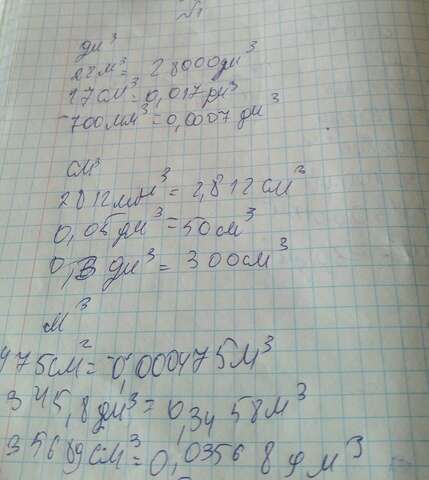 №1
дм³
28м³ = 28000дм³
17см³ = 0,017дм³
700мм³ = 0,0007 дм³
см³
2812мм³ = 2,812см³
0,05дм³ = 50см³
0,3 дм³ = 300см³
м³
475см³ = 0,000475м³
345,8дм³ = 0,3458м³
35689см³ = 0,035689м³